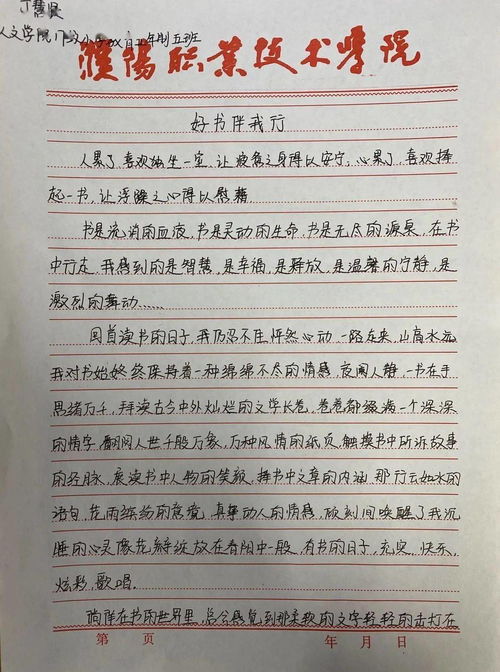 丁慧贤
人文学院 小学教育五年制五班
濮阳职业技术学院
好书伴我行
人累了,喜欢独坐一室,让疲惫之身得以安宁,心累了,喜欢捧
起一书,让浮躁之心得以慰藉。
书是流淌的血液,书是灵动的生命,书是无尽的源泉,在书
中行走,我感到的是智慧,是幸福,是释放,是温馨的宁静,是
激烈的舞动……
回首读书的日子,我仍忍不住怦然心动,一路走来,山高水远
我对书始终终保持着一种绵绵不尽的情感,夜阑人静,一书在手
思绪万千,拜读古今中外灿烂的文学长卷,卷卷都缀满一个深深
的情字,翻阅人世千般万象,万种风情的纸页,触摸书中所诉故事
的经脉,展读书中人物的笑貌,择书中文章的内涵,那行云如水的
语句,花雨缤纷的意境,真挚动人的情感,顷刻间唤醒了我沉
睡的心灵像花瓣绽放在春阳中一般,有书的日子,充实,快乐,
炫彩,歌唱。
徜徉在书的世界里,总会感觉到那柔软的文字轻轻的击打在
第 页 年 月 日